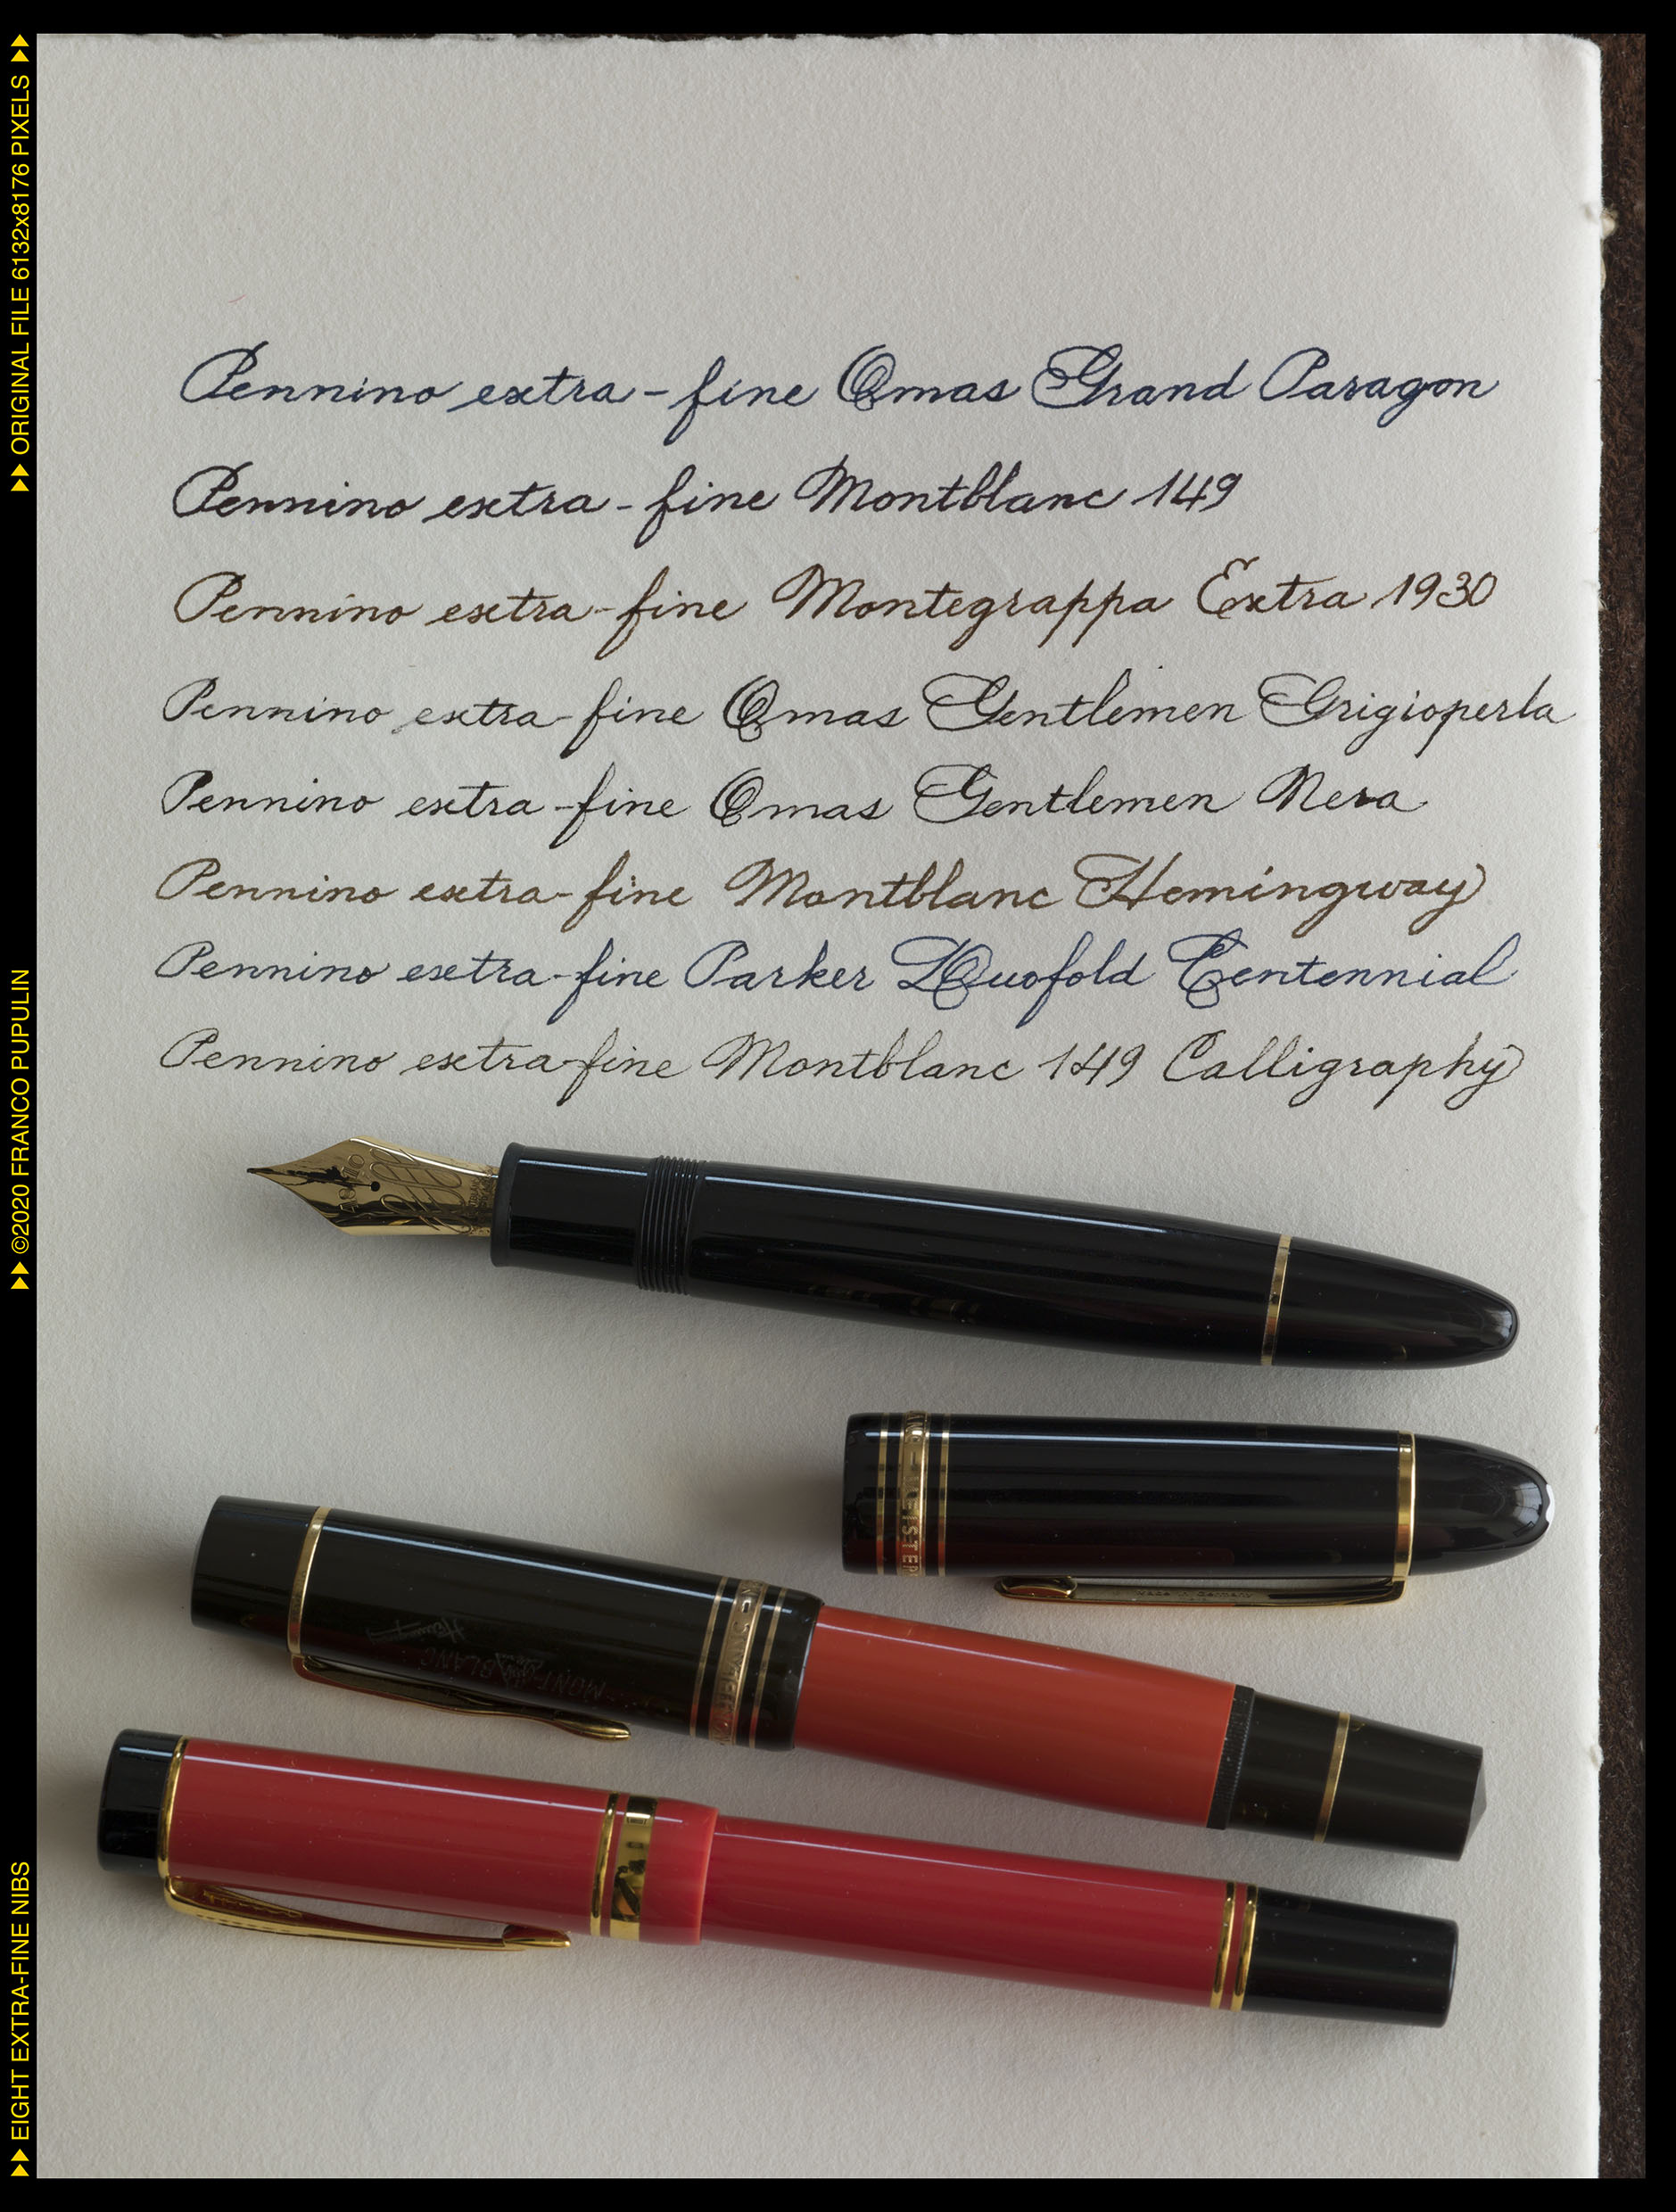 Pennino extra-fine Omas Grand Paragon
Pennino extra-fine Montblanc 149
Pennino extra-fine Montegrappa Extra 1930
Pennino extra-fine Omas Gentlemen Grigioperla
Pennino extra-fine Omas Gentlemen Nera
Pennino extra-fine Montblanc Hemingway
Pennino extra-fine Parker Duofold Centennial
Pennino extra-fine Montblanc 149 Calligraphy
4810
MONTBLANC
Made in Germany
EIGHT EXTRA-FINE NIBS
©2020 FRANCO PUPULIN
ORIGINAL FILE 6132x8176 PIXELS